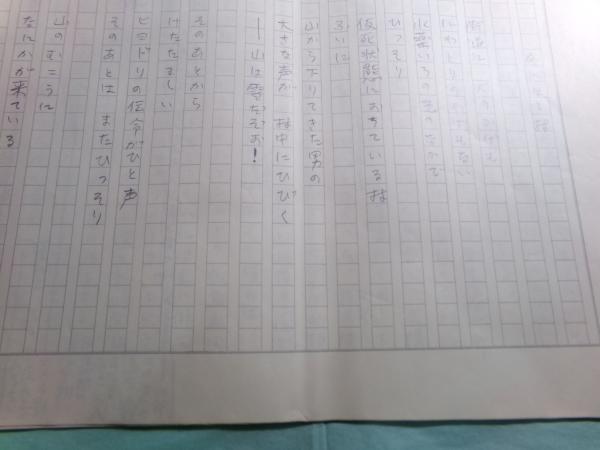 街道に
もない
いろの光のなかで
ひっそり
仮死状態におちている村
ふいに
山から下りてきた男の
大きな声が 村中にひびく
――山は雪だぞお!
そのあとから
けたたましい
ヒヨドリの伝令がひと声
そのあとは またひっそり
山のむこうに
なにかが来ている